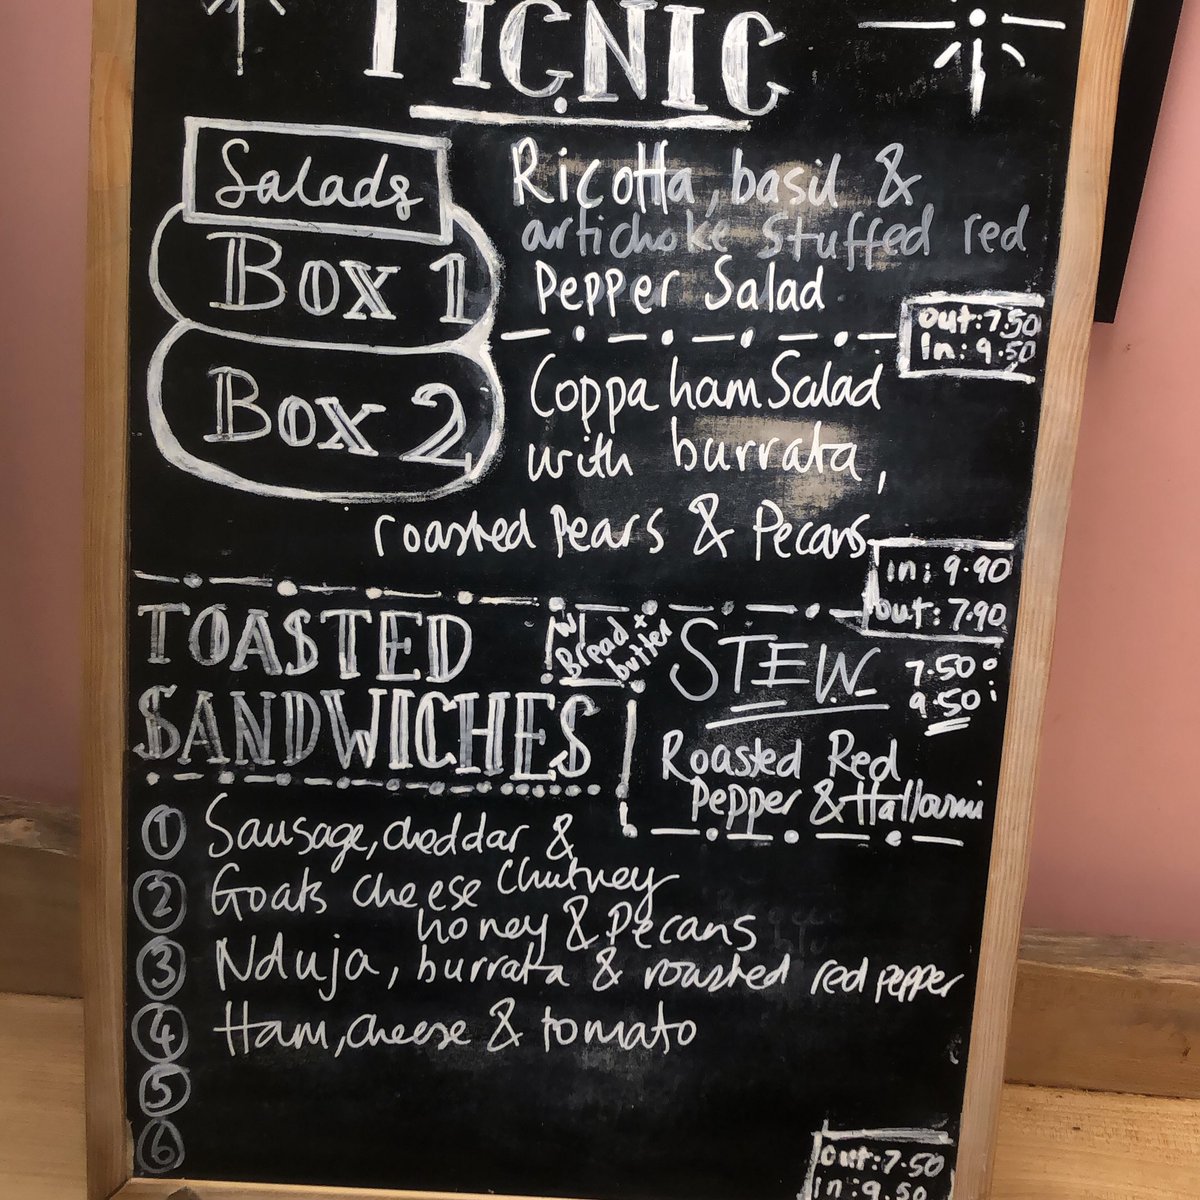 PICNIC
Salads
Box 1
Ricotta, basil &
artichoke stuffed red
pepper Salad
out: 7.50
in: 9.50
Box 2
Coppa ham Salad
with burrata,
roasted pears & pecans
in: 9.90
out: 7.90
TOASTED
SANDWICHES
w/
Bread +
butter
STEW
7.50 o
9.50 i
Roasted Red
Pepper & Halloumi
1 Sausage, cheddar &
chutney
2 Goats cheese
honey & Pecans
3 Nduja, burrata & roasted red pepper
4 Ham, cheese & tomato
5
6
out: 7.50
in: 9.50